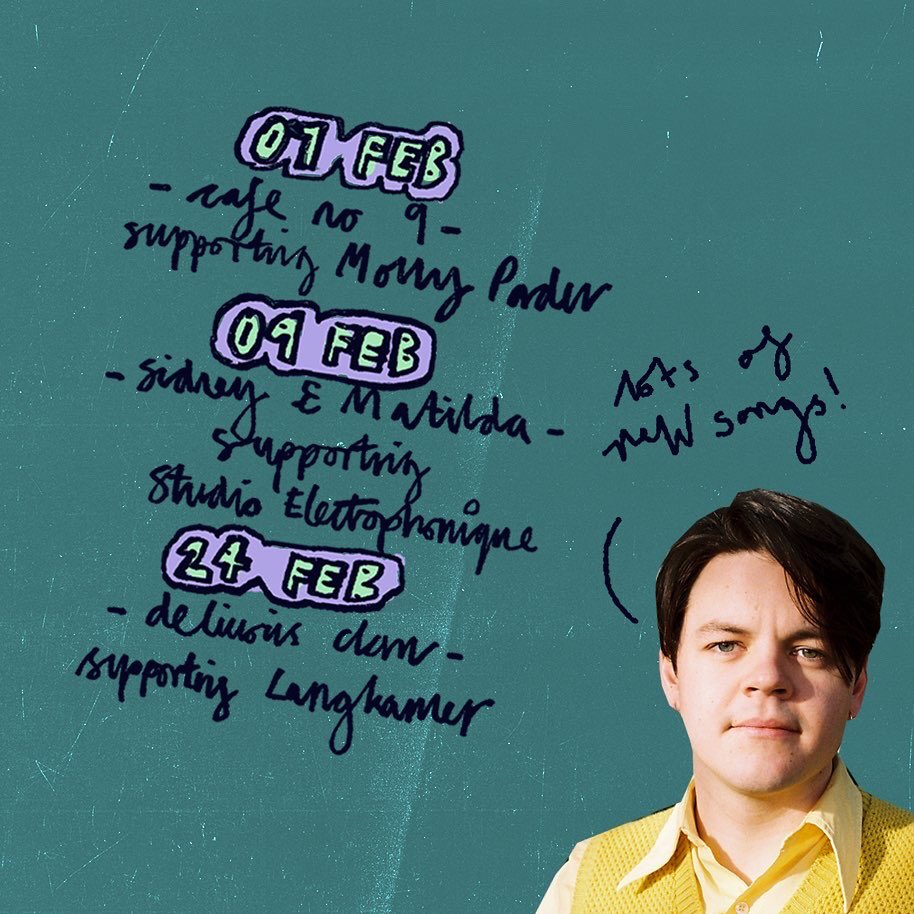 07 FEB
- cafe no 9 -
supporting Molly Parden
09 FEB
- Sidney & Matilda -
supporting
Studio Electrophonique
24 FEB
- delicious clam -
supporting Langkamer
lots of
new songs!